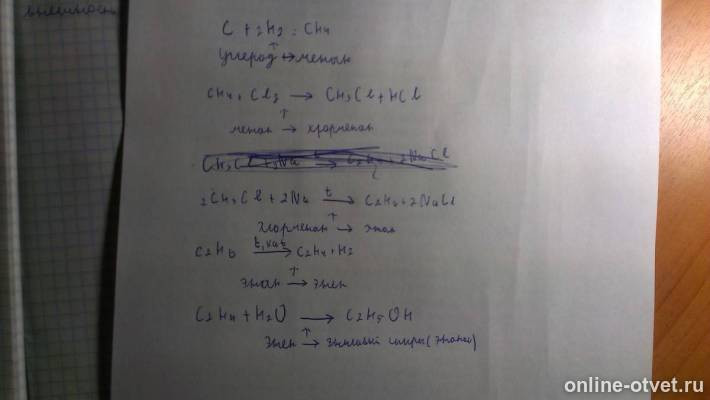 C + 2H2 = CH4
углерод → метан
CH4 + Cl2 → CH3Cl + HCl
метан → хлорметан
CH3Cl + 2Na → C2H6 + 2NaCl
2CH3Cl + 2Na t → C2H6 + 2NaCl
хлорметан → этан
C2H6 t, кат → C2H4 + H2
этан → этен
C2H4 + H2O → C2H5OH
этен → этиловый спирт (этанол)
online-otvet.ru